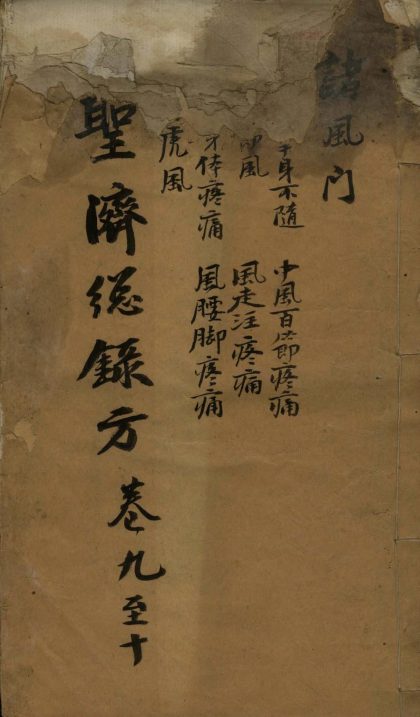 諸風門
半身不隨 中風百節疼痛
風 風走注疼痛
体疼痛 風腰脚疼痛
虎風
聖濟緫錄方 卷九至十